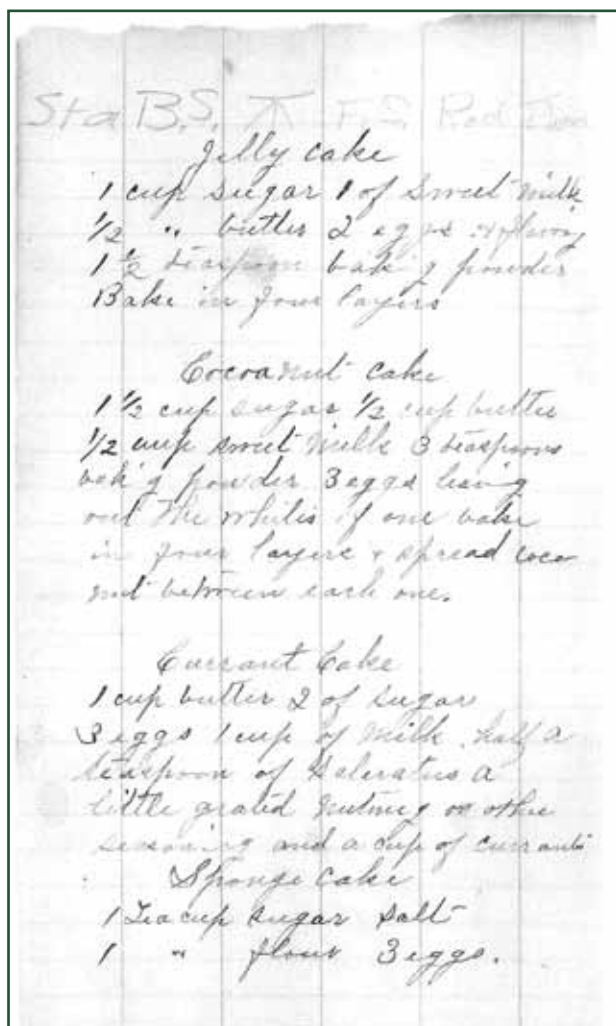 Sta B.S. ⊼ F.S. Rod
Jelly cake
1 cup sugar 1 of Sweet milk
1/2 " butter 2 eggs
1 1/2 teaspoon baking powder
Bake in four layers
Cocoanut cake
1 1/2 cup sugar 1/2 cup butter
1/2 cup sweet milk 3 teaspoons
bak'g powder 3 eggs leaving
out the whites of one bake
in four layers & spread coco
nut between each one.
Currant Cake
1 cup butter 2 of sugar
3 eggs 1 cup of milk. half a
teaspoon of Saleratus a
little grated nutmeg or other
seasoning and a cup of currants
Sponge cake
1 Teacup sugar salt
1 " flour 3 eggs.